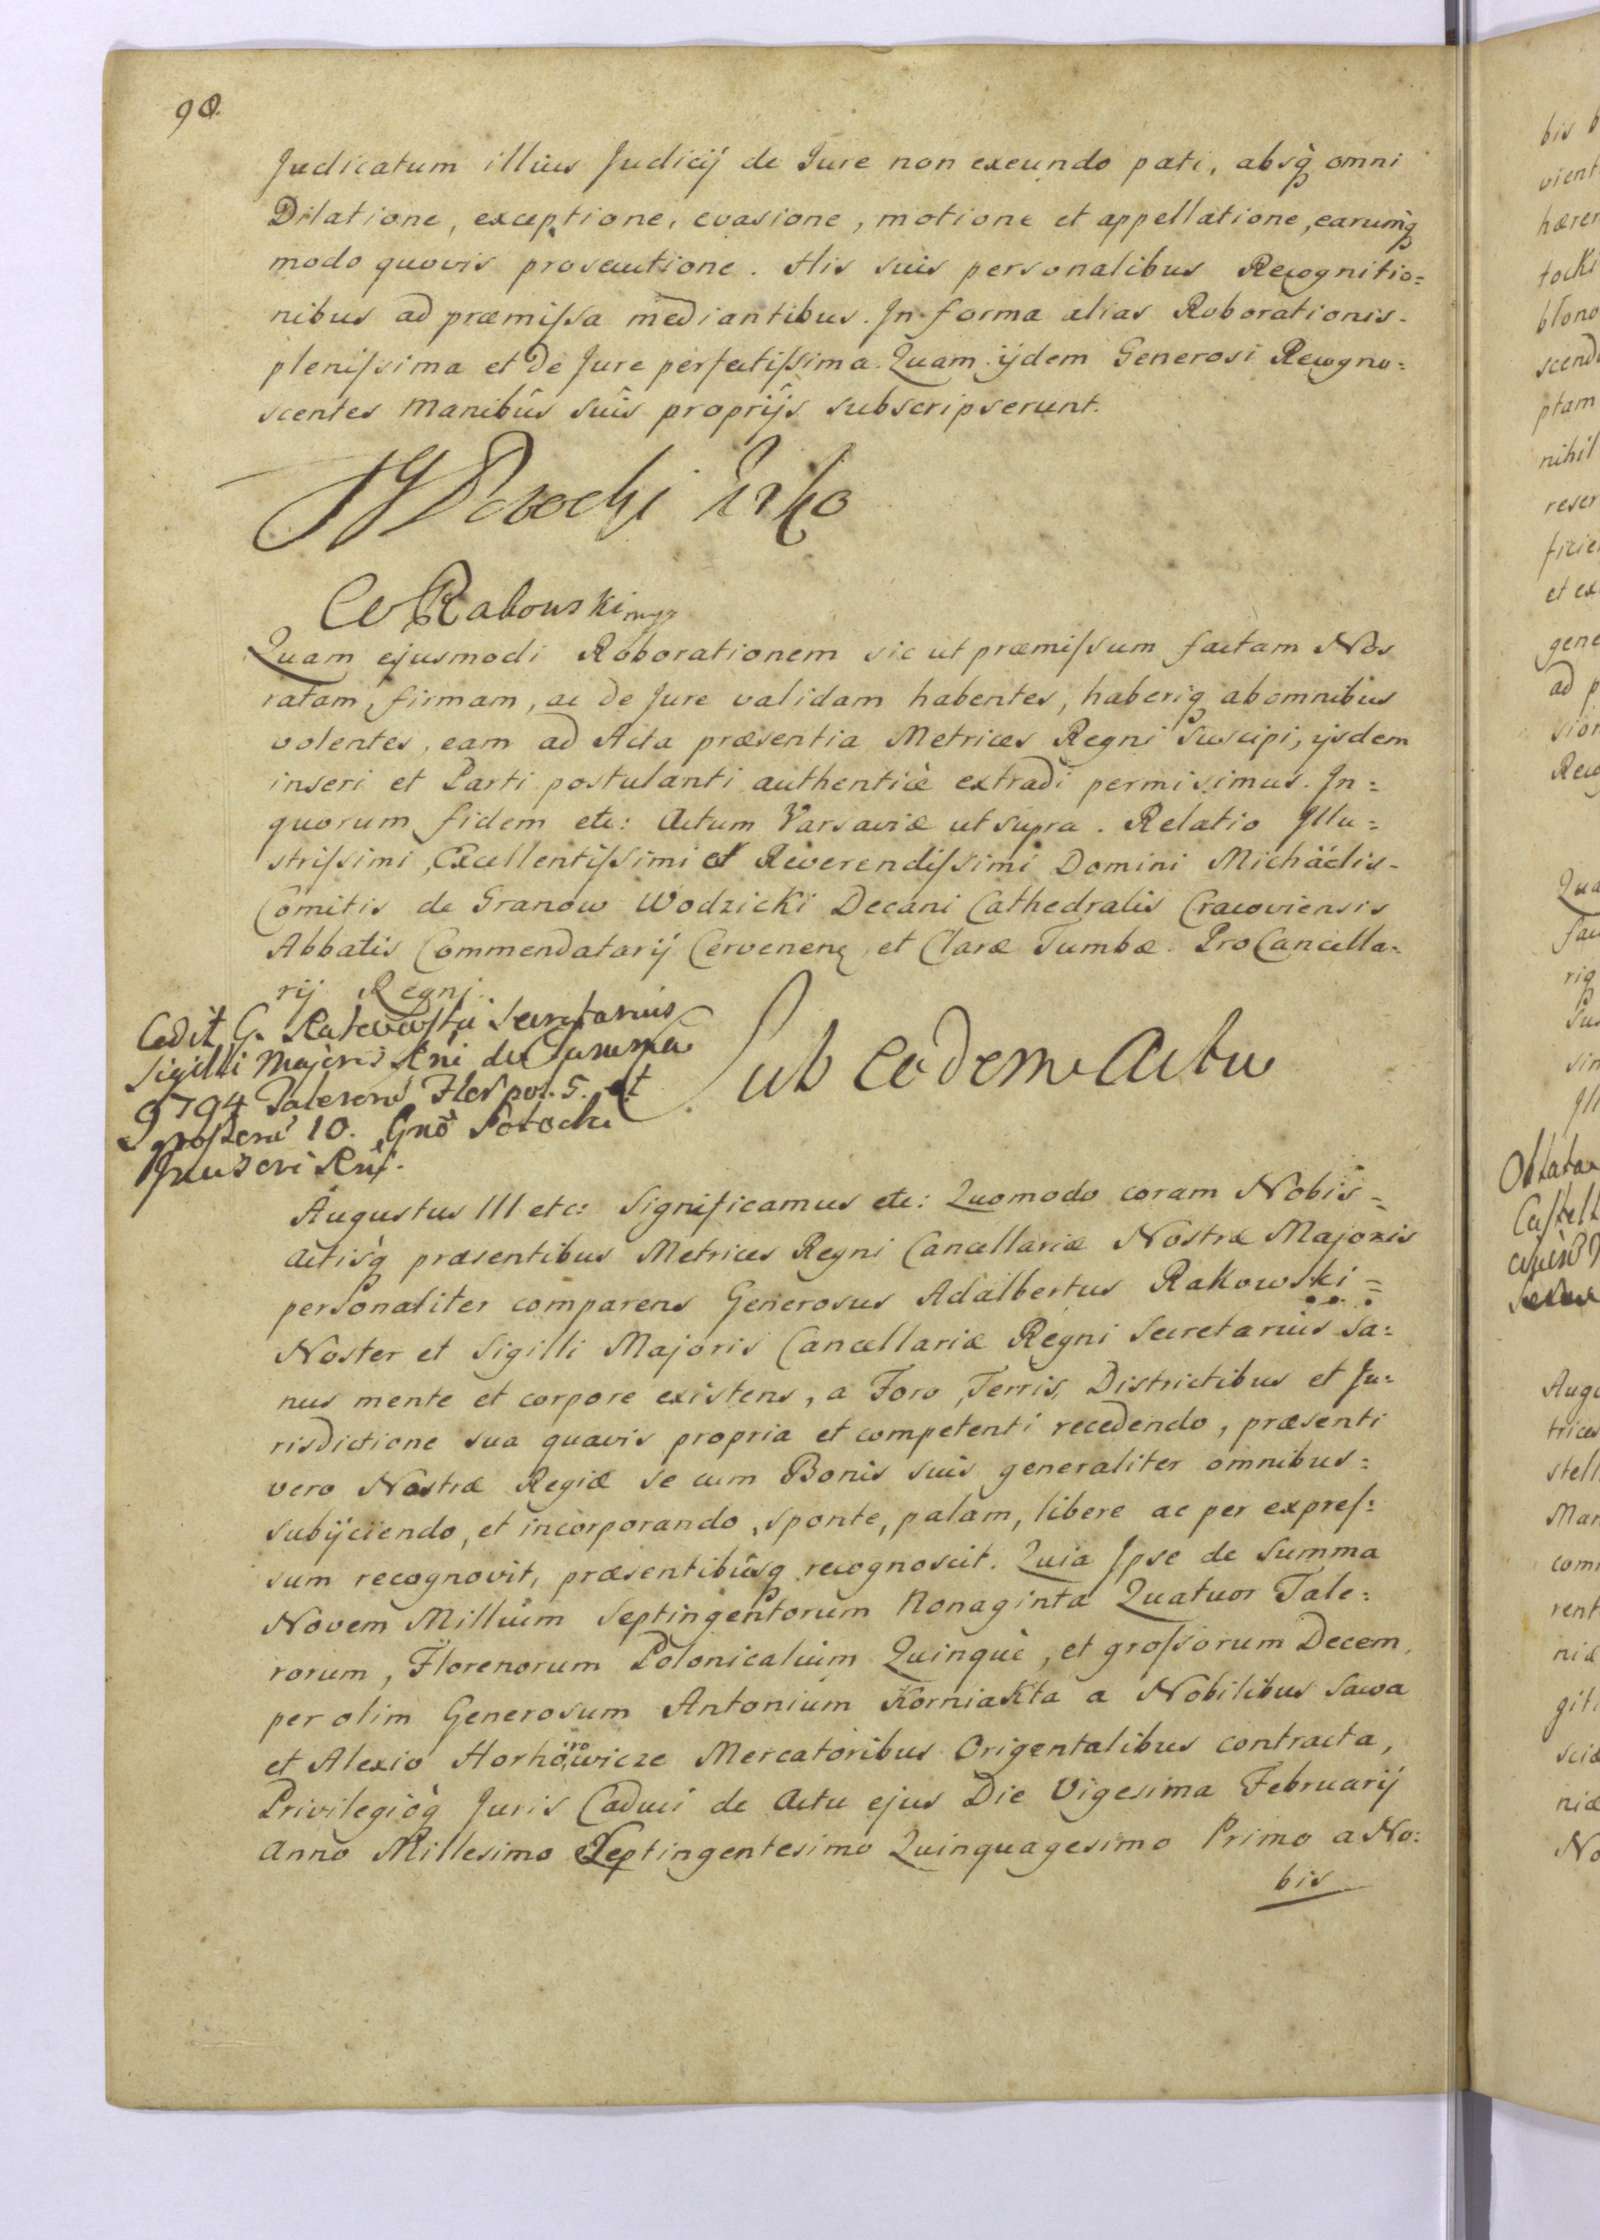 90.
Judicatum illius Judicij de Jure non exeundo pati, absq̀ omni
Dilatione, exceptione, evasione, motione et appellatione, earumq̀
modo quovis prosecutione. His suis personalibus Recognitio=
nibus ad præmissa mediantibus. In forma alias Roborationis
plenissima et De Jure perfectissima. Quam ijdem Generosi Recogno=
scentes Manibûs suis proprijs subscripserunt.
Potocki
Rakowski mpp
Quam ejusmodi Roborationem sic ut præmissum factam Nos
ratam, firmam, ac de Jure validam habentes, haberiq ab omnibus
volentes, eam ad Acta præsentia Metrices Regni Suscipi, ijsdem
inseri et Parti postulanti authenticè extradi permisimus. In=
quorum fidem etc: Actum Varsaviæ ut supra. Relatio Illu=
strissimi, Excellentissimi et Reverendissimi Domini Michäelis
Comitis de Granow Wodzicki Decani Cathedralis Cracoviensis
Abbatis Commendatarij Cervenen, et Claræ Tumbæ. ProCancella=
rij Regni.
Cedit G. Rakowski Secretarius
Sigilli Majoris Rni de Summa
9794 Talerorũ Flor pol. 5. et
grossorũ 10. Gnõ Potocki
Sub eodem Actu
Augustus III etc: Significamus etc: Quomodo coram Nobis=
Actisq̀ præsentibus Metrices Regni Cancellariæ Nostræ Majoris
personaliter comparens Generosus Adalbertus Rakowski=
Noster et Sigilli Majoris Cancellariæ Regni Secretarius sa=
nus mente et corpore existens, a Foro, Terris, Districtibus et Ju=
risdictione sua quavis propria et competenti recedendo, præsenti
vero Nostræ Regiæ se cum Bonis suis generaliter omnibus=
subijciendo, et incorporando, sponte, palam, libere ac per expres=
sum recognovit, præsentibûsq recognoscit. Quia Ipse de Summa
Novem Millium Septingentorum Nonaginta Quatuor Tale=
rorum, Florenorum Polonicalium Quinquè, et grossorum Decem,
per olim Generosum Antonium Korniakta a Nobilibus Sawa
et Alexio Horhorowicze Mercatoribus Origentalibus contracta,
Privilegioq̀ Juris Caduci de Actu ejus Die Vigesima Februarij
Anno Millesimo Septingentesimo Quinquagesimo Primo a No=
bis